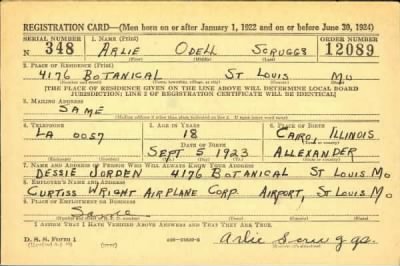 REGISTRATION CARD—(Men born on or after January 1, 1922 and on or before June 30, 1924)
SERIAL NUMBER 1. NAME (Print) ORDER NUMBER
N 348 ARLIE ODELL SCRUGGS 12089
(First) (Middle) (Last)
2. PLACE OF RESIDENCE (Print)
4176 BOTANICAL ST LOUIS MO
(Number and street) (Town, township, village, or city) (County) (State)
[THE PLACE OF RESIDENCE GIVEN ON THE LINE ABOVE WILL DETERMINE LOCAL BOARD
JURISDICTION; LINE 2 OF REGISTRATION CERTIFICATE WILL BE IDENTICAL]
3. MAILING ADDRESS
SAME
[Mailing address if other than place indicated on line 2. If same insert word same]
4. TELEPHONE 5. AGE IN YEARS 6. PLACE OF BIRTH
LA 0057 18 CAIRO, ILLINOIS
DATE OF BIRTH (Town or county)
SEPT 5 1923 ALLEXANDER
(Exchange) (Number) (Mo.) (Day) (Yr.) (State or country)
7. NAME AND ADDRESS OF PERSON WHO WILL ALWAYS KNOW YOUR ADDRESS
DESSIE JORDEN 4176 BOTANICAL ST LOUIS MO
8. EMPLOYER'S NAME AND ADDRESS
CURTISS WRIGHT AIRPLANE CORP. AIRPORT, ST LOUIS MO
9. PLACE OF EMPLOYMENT OR BUSINESS
Same
(Number and street or R. F. D. number) (Town) (County) (State)
I AFFIRM THAT I HAVE VERIFIED ABOVE ANSWERS AND THAT THEY ARE TRUE.
D. S. S. Form 1
Arlie Scruggs